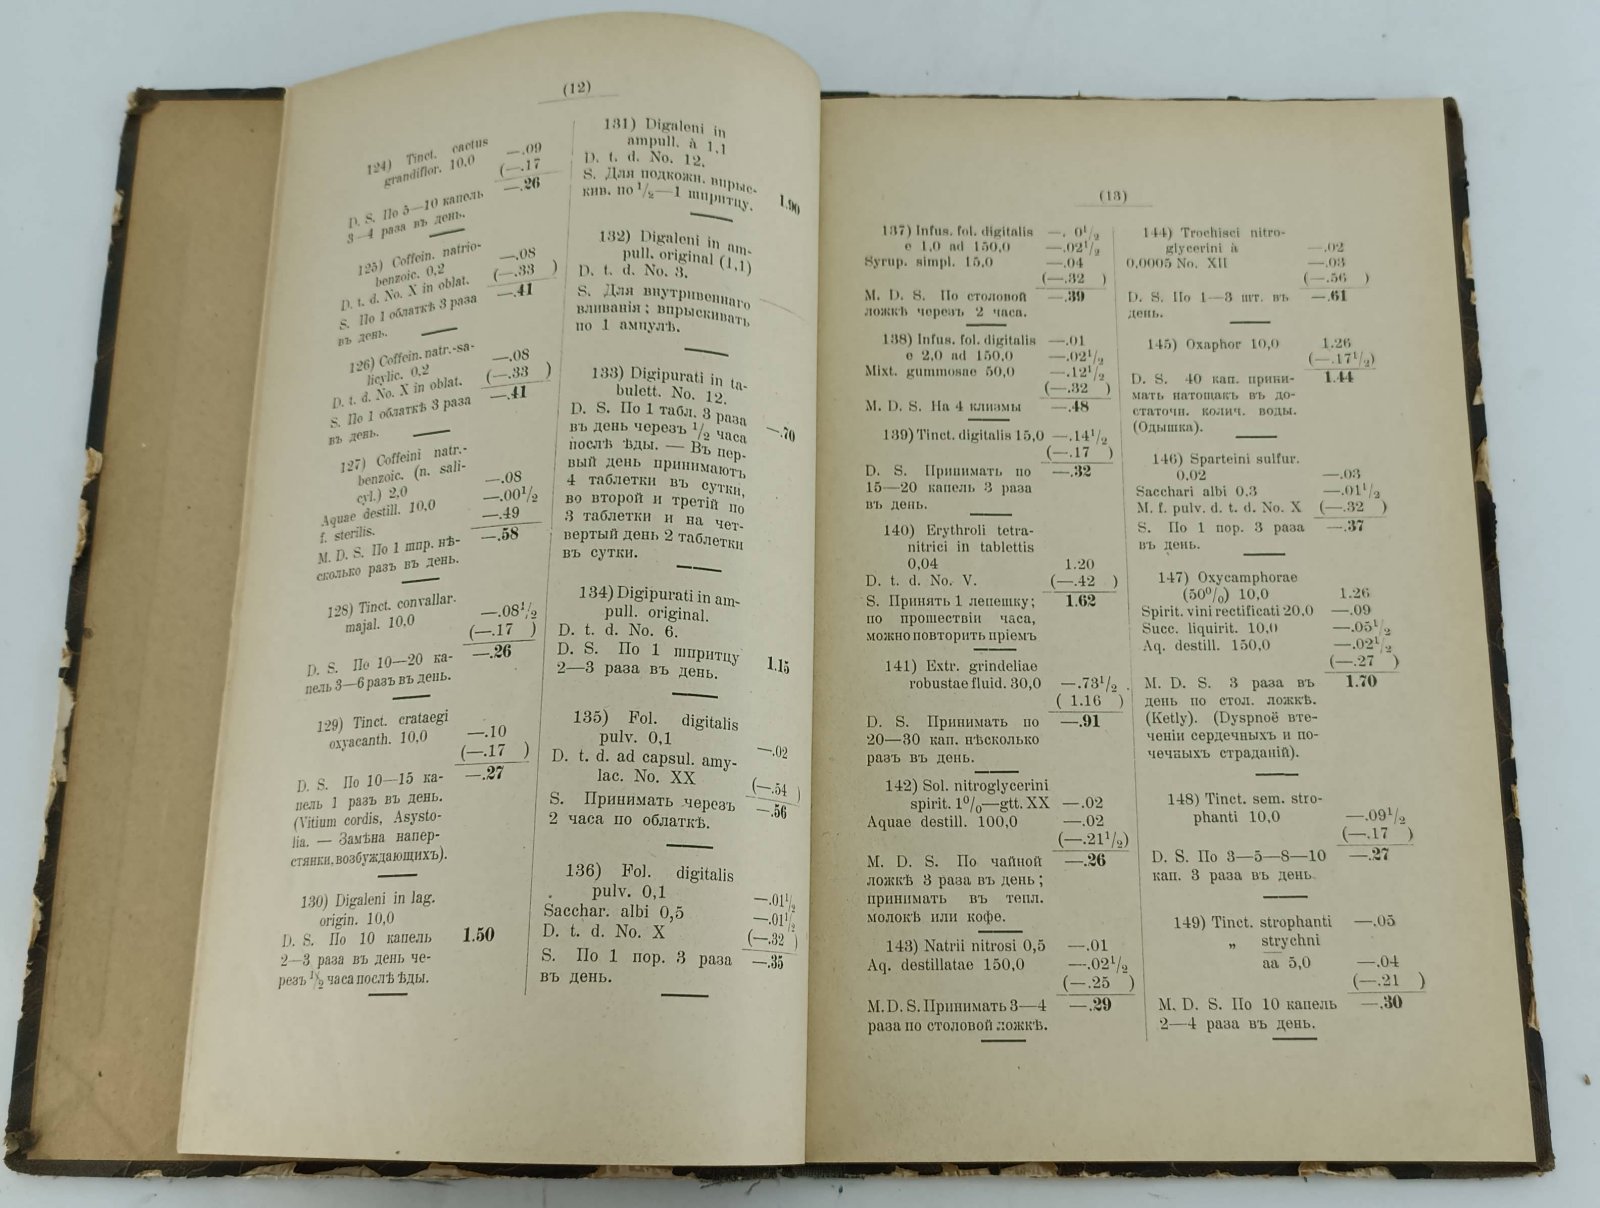 (12)
124) Tinct. cactus
grandiflor. 10,0 —.09
(—.17
—.26
D. S. По 5—10 капель
3—4 раза въ день.
125) Coffein. natrio-
benzoic. 0,2 —.08
D. t. d. No. X in oblat. (—.33 )
S. По 1 облаткѣ 3 раза —.41
въ день.
126) Coffein. natr.-sa-
licylic. 0,2 —.08
D. t. d. No. X in oblat. (—.33 )
S. По 1 облаткѣ 3 раза —.41
въ день.
127) Coffeini natr.-
benzoic. (n. sali-
cyl.) 2,0 —.08
Aquae destill. 10,0 —.00½
f. sterilis. —.49
M. D. S. По 1 шпр. нѣ- —.58
сколько разъ въ день.
128) Tinct. convallar.
majal. 10,0 —.08½
(—.17 )
D. S. По 10—20 ка- —.26
пель 3—6 разъ въ день.
129) Tinct. crataegi
oxyacanth. 10,0 —.10
(—.17 )
D. S. По 10—15 ка- —.27
пель 1 разъ въ день.
(Vitium cordis, Asysto-
lia. — Замѣна напер-
стянки, возбуждающихъ).
130) Digaleni in lag.
origin. 10,0
D. S. По 10 капель 1.50
2—3 раза въ день че-
резъ ½ часа послѣ ѣды.
131) Digaleni in
ampull. à 1,1
D. t. d. No. 12.
S. Для подкожн. впрыс-
кив. по ½—1 шприцу. 1.90
132) Digaleni in am-
pull. original (1,1)
D. t. d. No. 3.
S. Для внутривеннаго
вливанія; впрыскивать
по 1 ампулѣ.
133) Digipurati in ta-
bulett. No. 12.
D. S. По 1 табл. 3 раза
въ день черезъ ½ часа —.70
послѣ ѣды. — Въ пер-
вый день принимаютъ
4 таблетки въ сутки,
во второй и третій по
3 таблетки и на чет-
вертый день 2 таблетки
въ сутки.
134) Digipurati in am-
pull. original.
D. t. d. No. 6.
D. S. По 1 шпритцу 1.15
2—3 раза въ день.
135) Fol. digitalis
pulv. 0,1 —.02
D. t. d. ad capsul. amy-
lac. No. XX (—.54 )
S. Принимать черезъ —.56
2 часа по облаткѣ.
136) Fol. digitalis
pulv. 0,1 —.01½
Sacchar. albi 0,5 —.01½
D. t. d. No. X (—.32 )
S. По 1 пор. 3 раза —.35
въ день.
(13)
137) Infus. fol. digitalis —. 0½
e 1,0 ad 150,0 —.02½
Syrup. simpl. 15,0 —.04
(—.32 )
M. D. S. По столовой —.39
ложкѣ черезъ 2 часа.
138) Infus. fol. digitalis —.01
e 2,0 ad 150,0 —.02½
Mixt. gummosae 50,0 —.12½
(—.32 )
M. D. S. На 4 клизмы —.48
139) Tinct. digitalis 15,0 —.14½
(—.17 )
D. S. Принимать по —.32
15—20 капель 3 раза
въ день.
140) Erythroli tetra-
nitrici in tablettis
0,04 1.20
D. t. d. No. V. (—.42 )
S. Принять 1 лепешку; 1.62
по прошествіи часа,
можно повторить пріемъ
141) Extr. grindeliae
robustae fluid. 30,0 —.73½
( 1.16 )
D. S. Принимать по —.91
20—30 кап. нѣсколько
разъ въ день.
142) Sol. nitroglycerini
spirit. 1%—gtt. XX —.02
Aquae destill. 100,0 —.02
(—.21½)
M. D. S. По чайной —.26
ложкѣ 3 раза въ день;
принимать въ тепл.
молокѣ или кофе.
143) Natrii nitrosi 0,5 —.01
Aq. destillatae 150,0 —.02½
(—.25 )
M. D. S. Принимать 3—4 —.29
раза по столовой ложкѣ.
144) Trochisci nitro-
glycerini à —.02
0,0005 No. XII —.03
(—.56 )
D. S. По 1—3 шт. въ —.61
день.
145) Oxaphor 10,0 1.26
(—.17½)
D. S. 40 кап. прини- 1.44
мать натощакъ въ до-
статочн. колич. воды.
(Одышка).
146) Sparteini sulfur.
0,02 —.03
Sacchari albi 0,3 —.01½
M. f. pulv. d. t. d. No. X (—.32 )
S. По 1 пор. 3 раза —.37
въ день.
147) Oxycamphorae
(50%) 10,0 1.26
Spirit. vini rectificati 20,0 —.09
Succ. liquirit. 10,0 —.05½
Aq. destill. 150,0 —.02½
(—.27 )
M. D. S. 3 раза въ 1.70
день по стол. ложкѣ.
(Ketly). (Dyspnoë вте-
ченіи сердечныхъ и по-
чечныхъ страданій).
148) Tinct. sem. stro-
phanti 10,0 —.09½
(—.17 )
D. S. По 3—5—8—10 —.27
кап. 3 раза въ день.
149) Tinct. strophanti —.05
„ strychni
aa 5,0 —.04
(—.21 )
M. D. S. По 10 капель —.30
2—4 раза въ день.